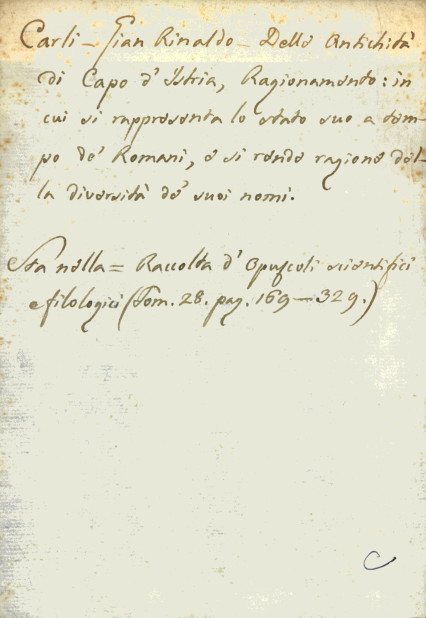 Carli - Gian Rinaldo - Delle Antichità
di Capo d'Istria, Ragionamento: in
cui si rappresenta lo stato suo a tem-
po de' Romani, e si rende ragione del-
la diversità de' suoi nomi.
Sta nella = Raccolta d'Opuscoli scientifici
e filologici (Tom. 28. pag. 169-329.)
C